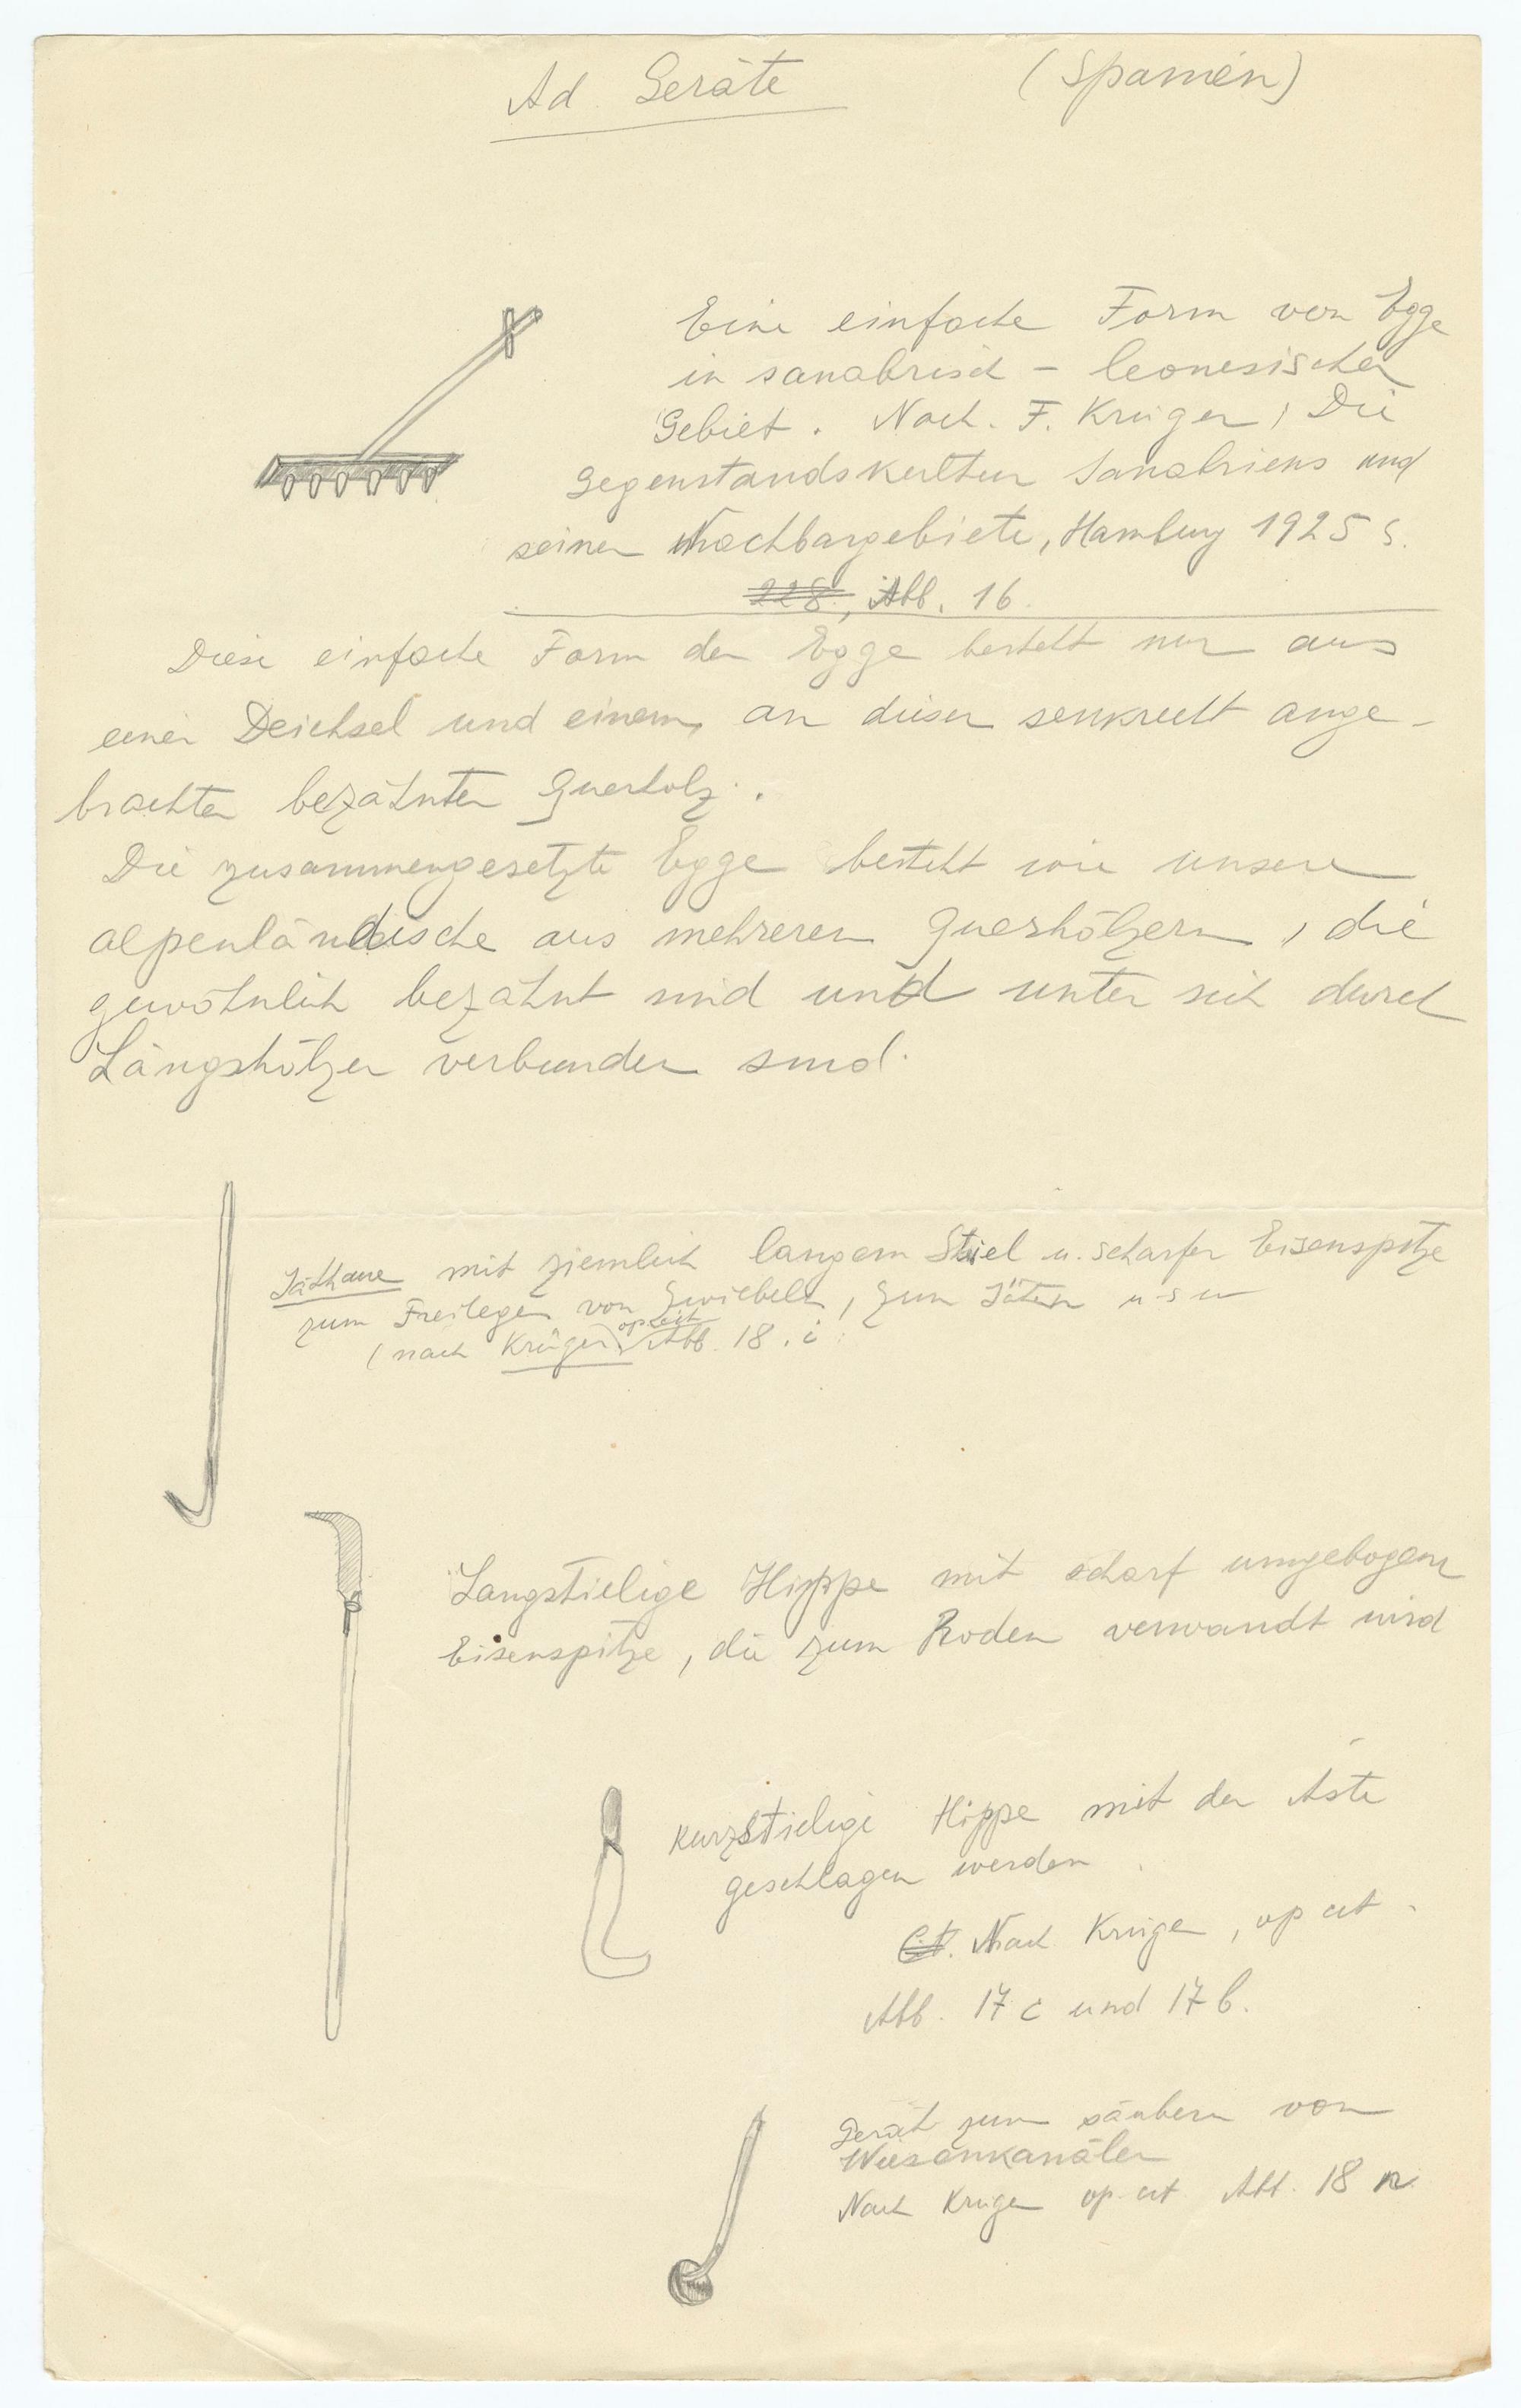 Ad. Geräte (Spanien)
Eine einfache Form von Egge
in sanabrisch - leonesischen
Gebiet. Nach. F. Krüger, Die
Gegenstandskultur Sanabriens und
seiner Nachbargebiete, Hamburg 1925 S.
228, Abb. 16.
Diese einfache Form der Egge besteht nur aus
einer Deichsel und einem, an dieser senkrecht ange-
brachten bezähnten Querholz.
Die zusammengesetzte Egge besteht wie unsere
alpenländische aus mehreren Querhölzern, die
gewöhnlich bezahnt sind und unter sich durch
Längshölzer verbunden sind.
Jäthaue mit ziemlich langem Stiel u. scharfer Eisenspitze
zum Freilegen von Zwiebeln, zum Jäten u s w
(nach Krüger op cit Abb. 18. i
Langstielige Hippe mit scharf umgebogener
Eisenspitze, die zum Roden verwandt wird
Kurzstielige Hippe mit der Äste
geschlagen werden.
Cit. Nach Krüger, op cit.
Abb. 17 c und 17 b.
Gerät zum säubern von
Wiesenkanälen
Nach Krüger op. cit. Abb. 18 n